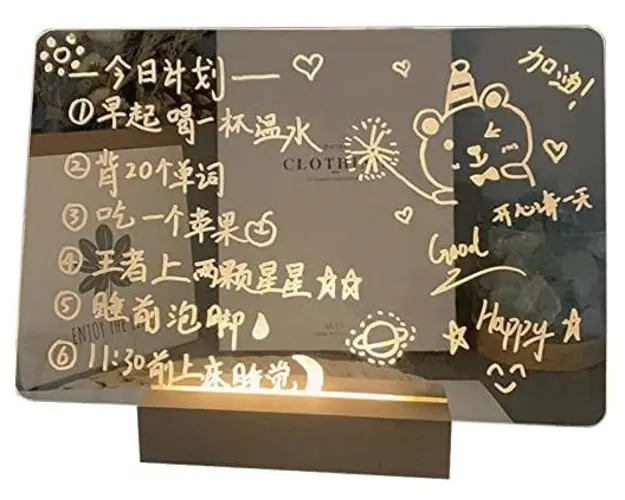 一今日计划一
①早起喝一杯温水
②背20个单词
③吃一个苹果
④王者上两颗星星
⑤睡前泡脚
⑥11:30前上床睡觉
加油!
开心每一天
Good
Happy
CLOTHI
ENJOY THE